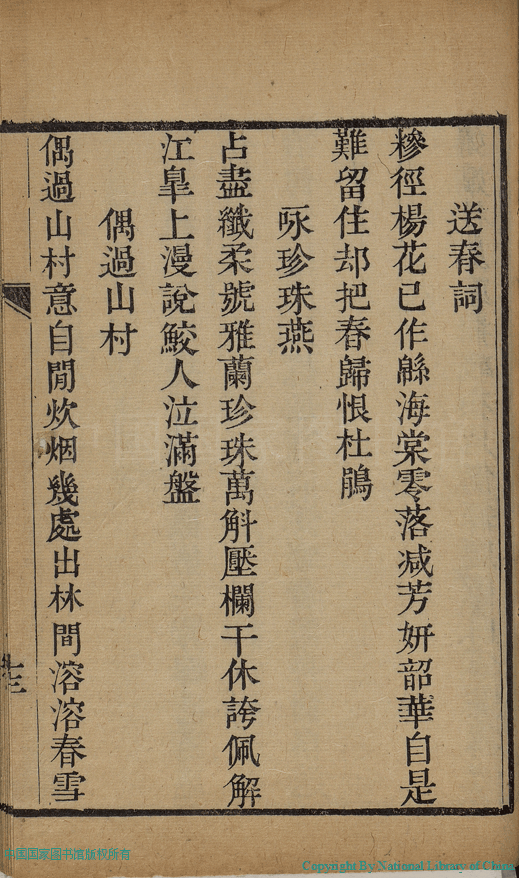 送春詞
糝徑楊花已作緜海棠零落减芳妍韶華自是
難留住却把春歸恨杜鵑
咏珍珠燕
占盡纖柔號雅蘭珍珠萬斛壓欄干休誇佩解
江臯上漫說鮫人泣滿盤
偶過山村
偶過山村意自閒炊烟幾處出林間溶溶春雪
十三
中国国家图书馆
中国国家图书馆版权所有
Copyright By National Library of China